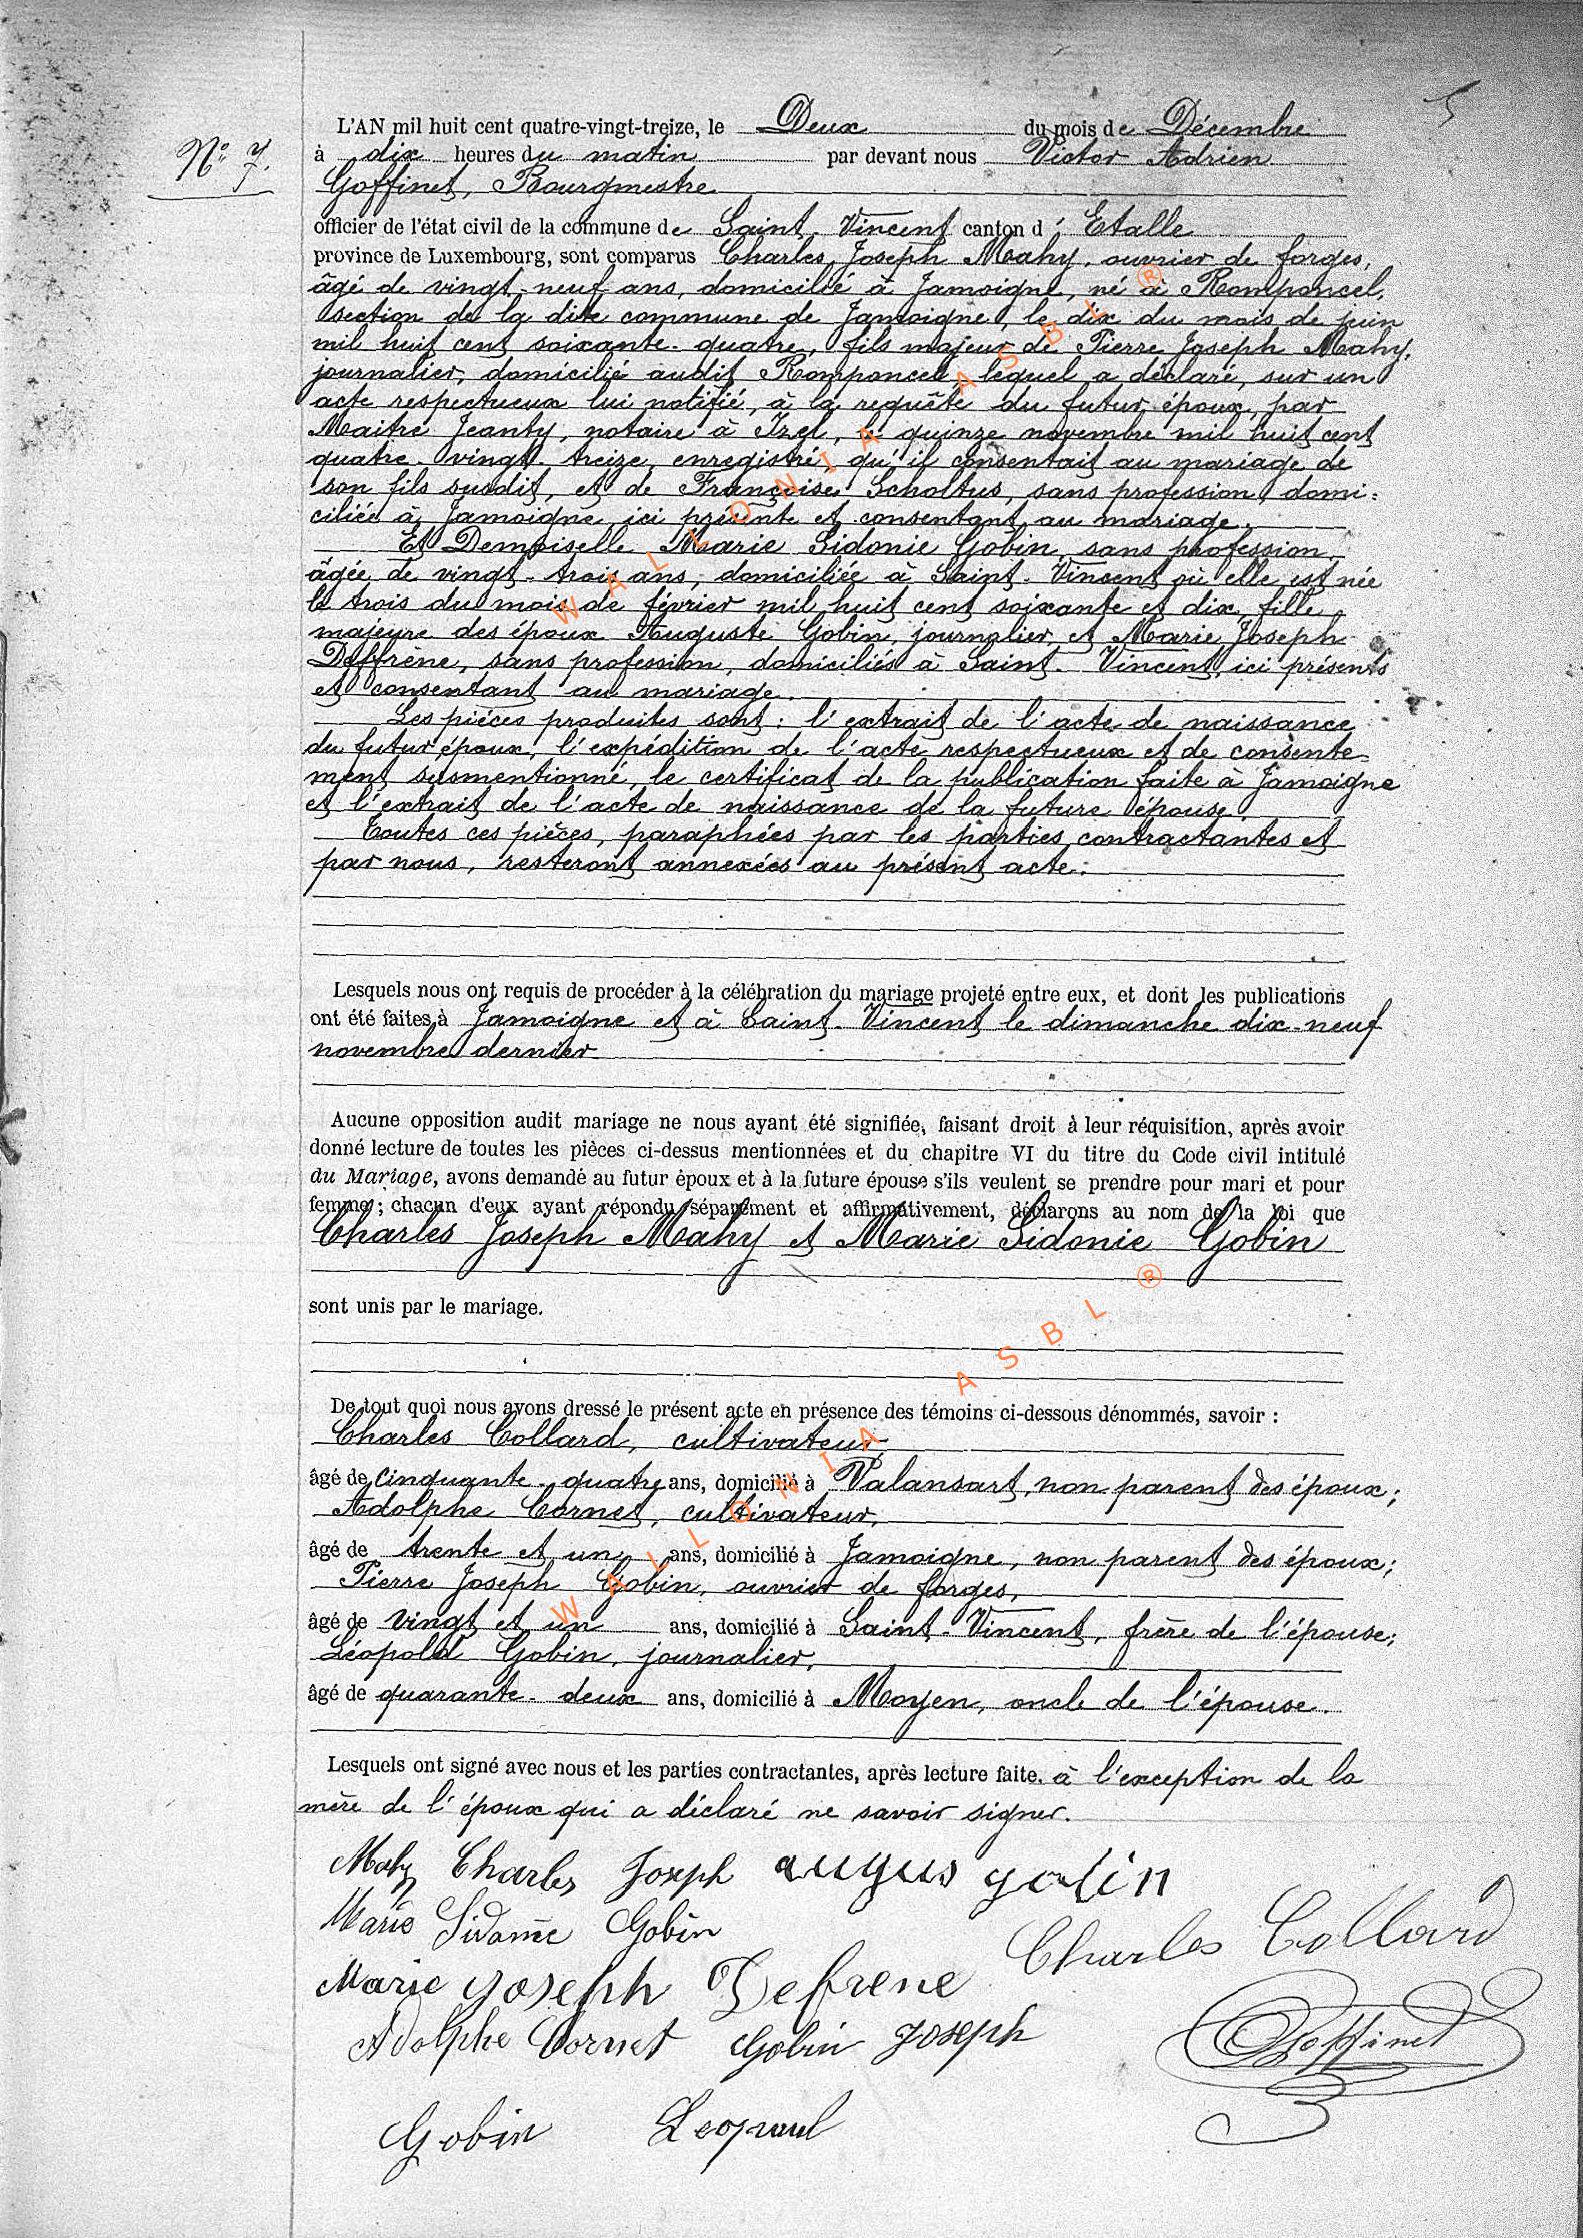 5
N° 7.
L'AN mil huit cent quatre-vingt-treize, le Deux du mois de Décembre
à dix heures du matin par devant nous Victor Adrien
Goffinet, Bourgmestre
officier de l'état civil de la commune de Saint-Vincent canton d'Etalle
province de Luxembourg, sont comparus Charles Joseph Mahy, ouvrier de forges,
âgé de vingt-neuf ans, domicilié à Jamoigne, né à Romponcel,
section de la dite commune de Jamoigne, le dix du mois de juin
mil huit cent soixante-quatre, fils majeur de Pierre Joseph Mahy,
journalier, domicilié audit Romponcel, lequel a déclaré, sur un
acte respectueux lui notifié, à la requête du futur époux, par
Maitre Jeanty, notaire à Izel, le quinze novembre mil huit cent
quatre-vingt-treize, enregistré, qu'il consentait au mariage de
son fils susdit, et de Françoise Scholtus, sans profession, domi=
ciliée à Jamoigne, ici présente et consentant au mariage.
Et Demoiselle Marie Sidonie Gobin, sans profession,
âgée de vingt-trois ans, domiciliée à Saint-Vincent où elle est née
le trois du mois de février mil huit cent soixante et dix, fille
majeure des époux Auguste Gobin, journalier, et Marie Joseph
Deffrène, sans profession, domiciliés à Saint-Vincent, ici présents
et consentant au mariage.
Les pièces produites sont : l'extrait de l'acte de naissance
du futur époux, l'expédition de l'acte respectueux et de consente=
ment susmentionné, le certificat de la publication faite à Jamoigne
et l'extrait de l'acte de naissance de la future épouse.
Toutes ces pièces, paraphées par les parties contractantes et
par nous, resteront annexées au présent acte.
Lesquels nous ont requis de procéder à la célébration du mariage projeté entre eux, et dont les publications
ont été faites à Jamoigne et à Saint-Vincent le dimanche dix-neuf
novembre dernier
Aucune opposition audit mariage ne nous ayant été signifiée, faisant droit à leur réquisition, après avoir
donné lecture de toutes les pièces ci-dessus mentionnées et du chapitre VI du titre du Code civil intitulé
du Mariage, avons demandé au futur époux et à la future épouse s'ils veulent se prendre pour mari et pour
femme ; chacun d'eux ayant répondu séparément et affirmativement, déclarons au nom de la loi que
Charles Joseph Mahy et Marie Sidonie Gobin
sont unis par le mariage.
De tout quoi nous avons dressé le présent acte en présence des témoins ci-dessous dénommés, savoir :
Charles Collard, cultivateur
âgé de cinquante-quatre ans, domicilié à Valansart, non parent des époux;
Adolphe Cornet, cultivateur,
âgé de trente et un ans, domicilié à Jamoigne, non parent des époux;
Pierre Joseph Gobin, ouvrier de forges,
âgé de vingt et un ans, domicilié à Saint-Vincent, frère de l'épouse;
Léopold Gobin, journalier,
âgé de quarante-deux ans, domicilié à Moyen, oncle de l'épouse.
Lesquels ont signé avec nous et les parties contractantes, après lecture faite. à l'exception de la
mère de l'époux qui a déclaré ne savoir signer.
Mahy Charles Joseph augus gobin
Marie Sidonie Gobin
Charles Collard
Marie Joseph Defrene
Adolphe Cornet Gobin Joseph
Goffinet
Gobin Leopaul
WALLONIA ASBL ®
WALLONIA ASBL ®